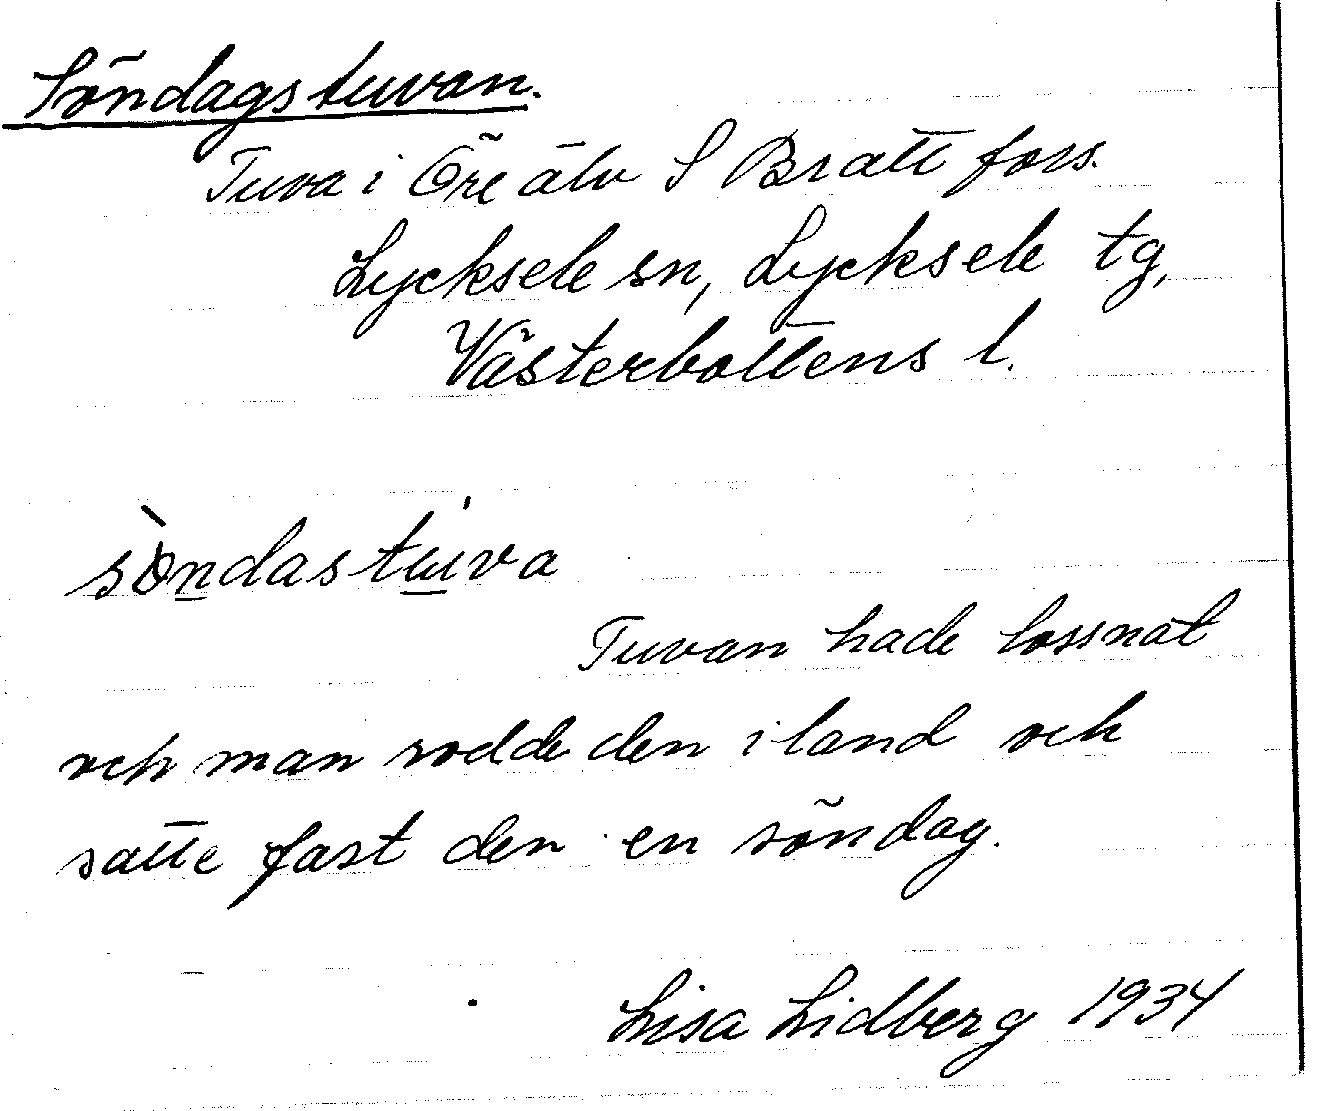 Söndagstuvan.
Tuva i Öre älv S Brattfors.
Lycksele sn, Lycksele tg,
Västerbottens l.
sòndastúva
Tuvan hade lossnat
och man rodde den i land och
satte fast den en söndag.
Lisa Lidberg 1934